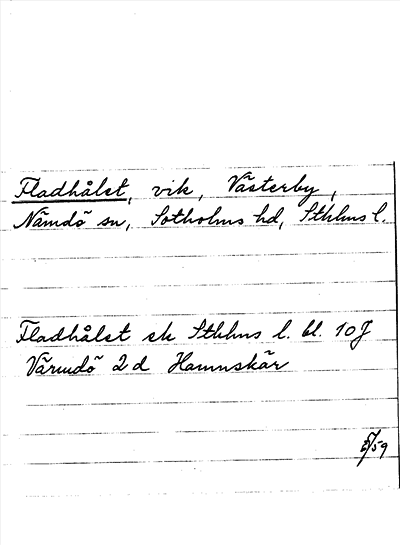 Fladhålet, vik, Västerby,
Nämdö sn, Sotholms hd, Sthlms l.
Fladhålet ek Sthlms l. bl. 10J
Värmdö 2d Hamnskär
/59